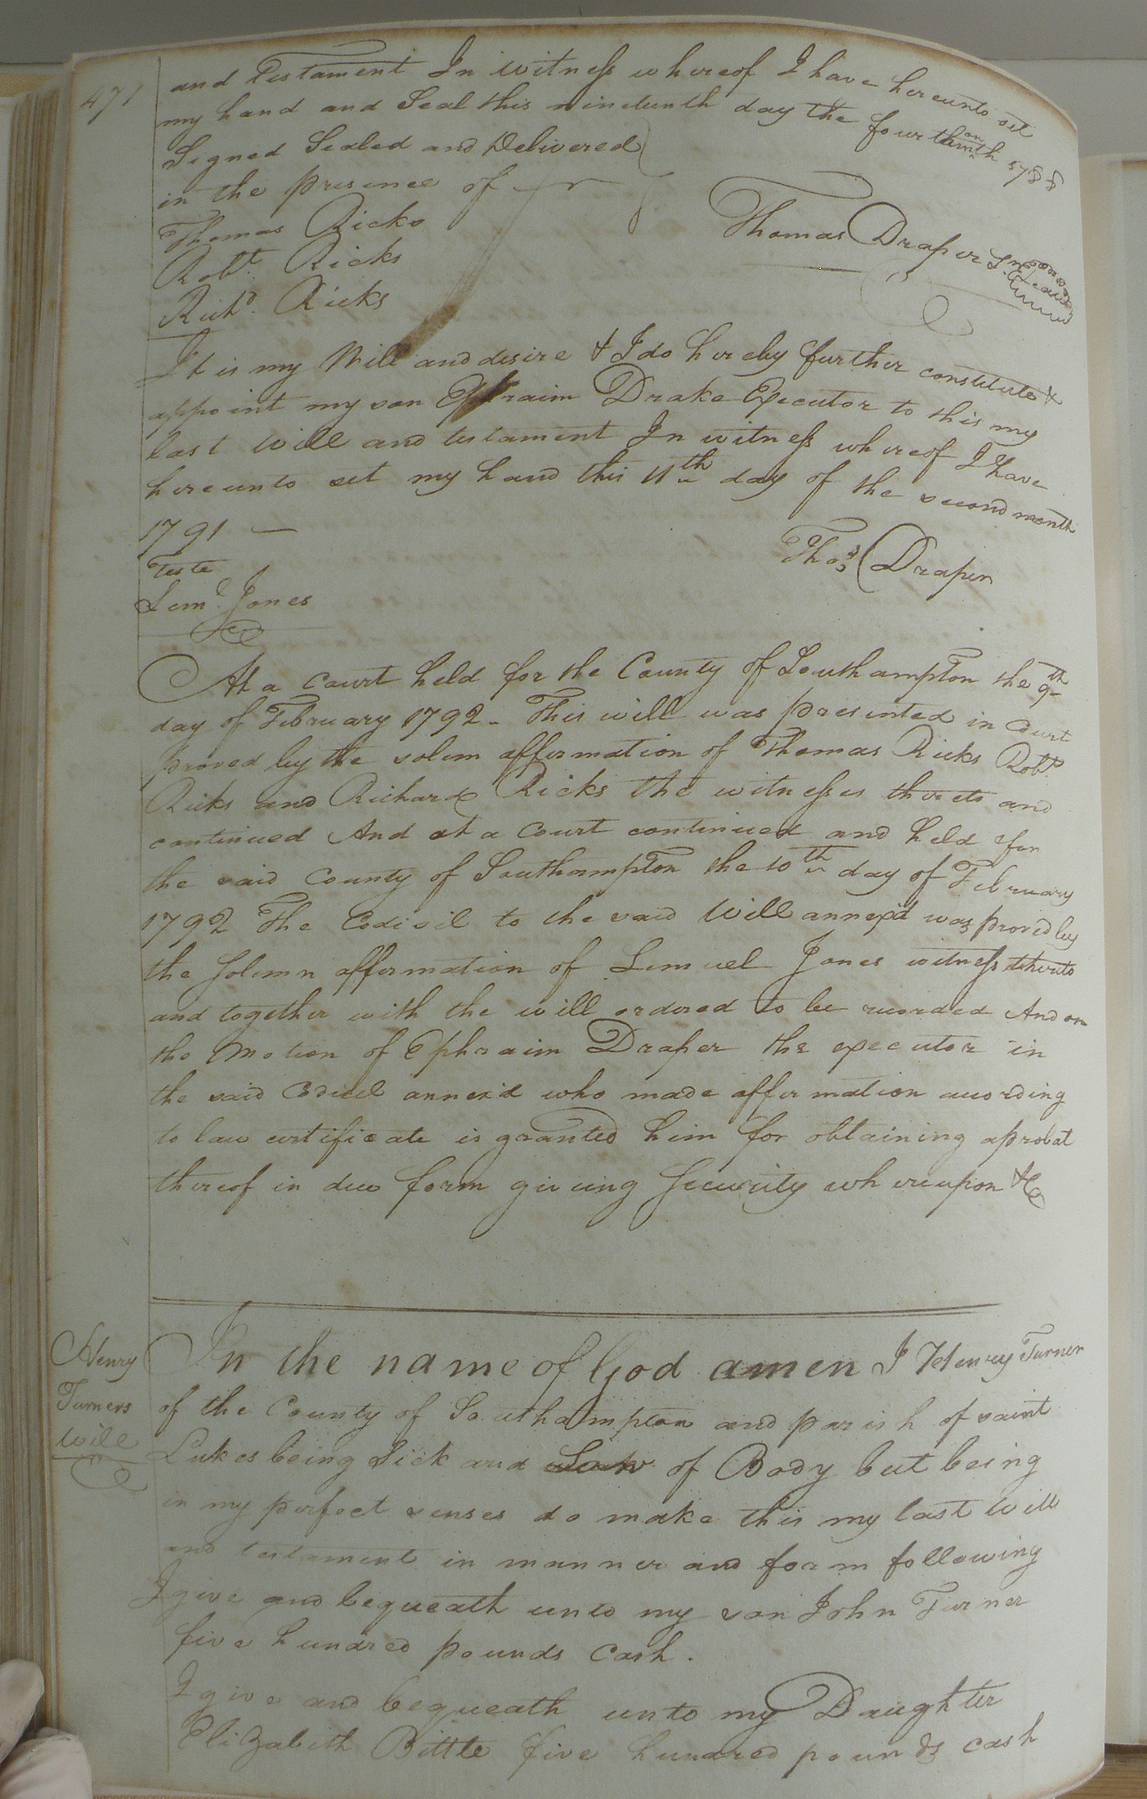 477
and Testament In witness whereof I have hereunto set
my hand and Seal this nineteenth day the fourth month 1788
Signed Sealed and Delivered
in the presence of
Thomas Draper
Thomas Ricks
Robt. Ricks
Richd. Ricks
It is my Will and desire & I do hereby further constitute &
appoint my son Ephraim Drake Executor to this my
last Will and testament In witness whereof I have
hereunto set my hand this 11th day of the second month
1791 —
Thos. Draper
Teste
Leml. Jones
At a Court held for the County of Southampton the 9th
day of February 1792. This will was presented in Court
proved by the solem affirmation of Thomas Ricks Robt.
Ricks and Richard Ricks the witnesses thereto and
continued And at a Court continued and held for
the said County of Southampton the 10th day of February
1792 The Codicil to the said Will annex'd was proved by
the Solemn affirmation of Lemuel Jones witness thereto
and together with the will ordered to be recorded And on
the Motion of Ephraim Draper the executor in
the said Codicil annex'd who made affirmation according
to law certificate is granted him for obtaining a probat
thereof in due form giving Security whereupon &c
Henry
Turners
Will
In the name of God amen I Henry Turner
of the County of Southampton and parish of saint
Lukes being Sick and Low of Body but being
in my perfect senses do make this my last Will
and testament in manner and form following
I give and bequeath unto my son John Turner
five hundred pounds Cash.
I give and bequeath unto my Daughter
Elizabeth Bittle five hundred pounds cash